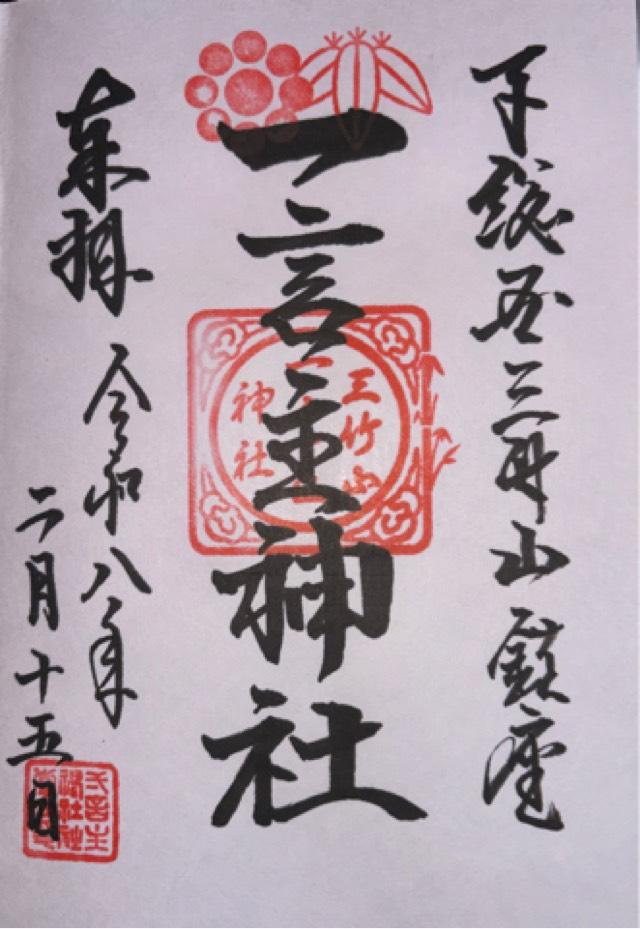 下総国三竹山鎮座
一言主神社
三竹山
神社
奉拝
令和八年
二月十五日